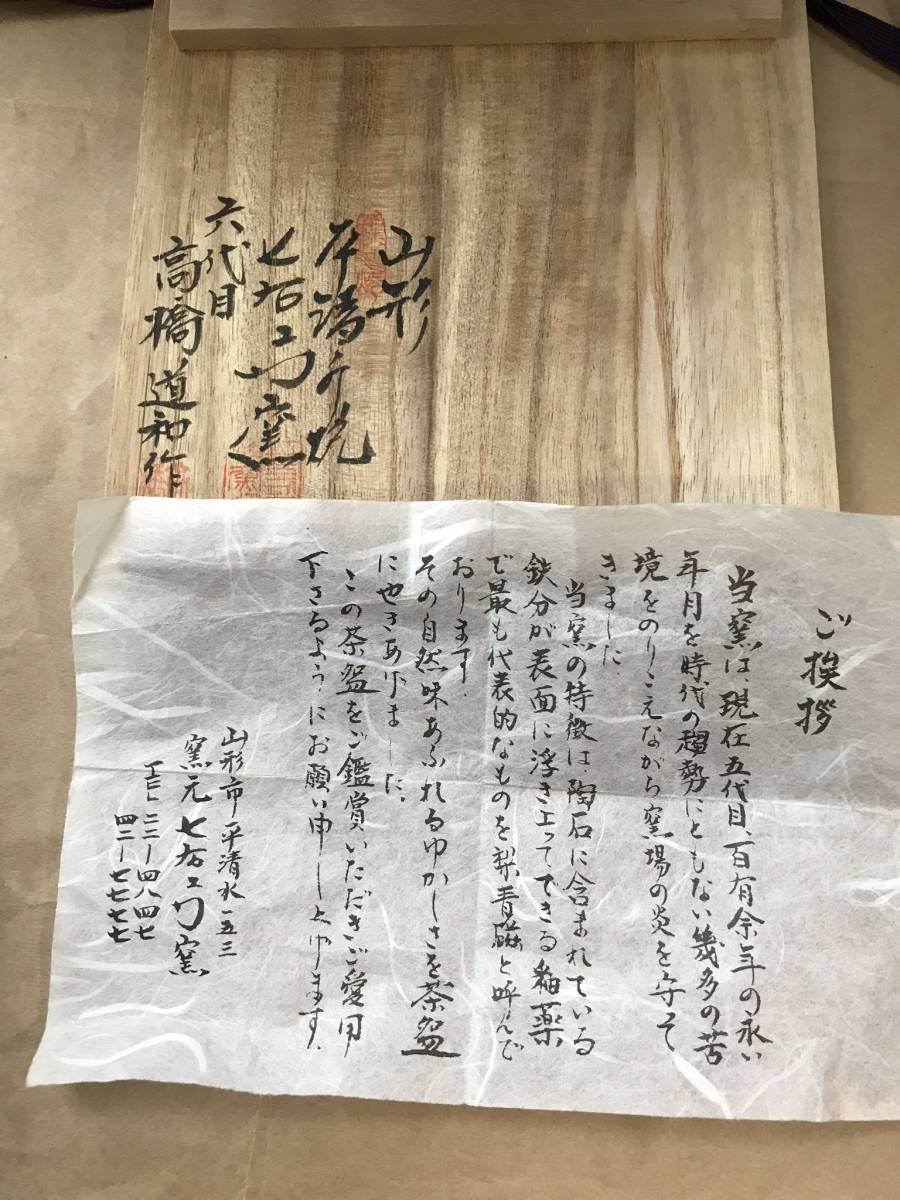 山形
平清水焼
七右エ門窯
六代目
高橋道和作
ご挨拶
当窯は、現在五代目、百有余年の永い
年月を時代の趨勢にともない幾多の苦
境をのりこえながら窯場の炎を守って
きました。
当窯の特徴は、陶石に含まれている
鉄分が表面に浮き上ってできる釉薬
で最も代表的なものを梨青磁と呼んで
おります。
その自然味あふれるゆかしさを茶盌
にやきあげました。
この茶盌をご鑑賞いただきご愛用
下さるようにお願い申し上げます。
山形市平清水一五三
窯元七右エ門窯
TEL 二二ー四八四七
四二ー七七七七